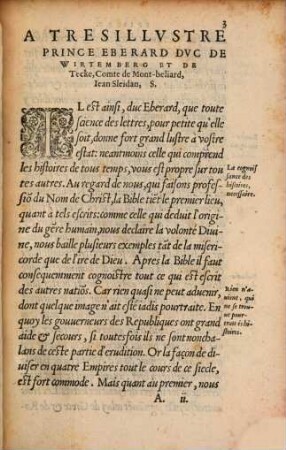 3
A TRESILLVSTRE
PRINCE EBERARD DVC DE
WIRTEMBERG ET DE
Tecke, Comte de Mont-beliard,
Iean Sleidan, S.
IL est ainsi, duc Eberard, que toute
science des lettres, pour petite qu'elle
soit, donne fort grand lustre à vostre
estat: neantmoins celle qui comprend
les histoires de tous temps, vous est propre sur tou
tes autres. Au regard de nous, qui faisons profes-
siō du Nom de Christ, la Bible tiēt le premier lieu,
quant à tels escrits: comme celle qui deduit l'origi
ne du gēre humain, nous declaire la volonté Diui-
ne, nous baille plusieurs exemples tāt de la miseri-
corde que de l'ire de Dieu. Apres la Bible il faut
consequemment cognoistre tout ce qui est escrit
des autres natiōs. Car rien quasi ne peut aduenir,
dont quelque image n'ait esté iadis pourtraite. En
quoy les gouuerneurs des Republiques ont grand
aide & secours, si toutesfois ils ne sont noncha-
lans de ceste partie d'erudition. Or la façon de di-
uiser en quatre Empires tout le cours de ce siecle,
est fort commode. Mais quant au premier, nous
A. ii.
La cognoif
sance des
histoires,
necessaire.
Rien n'a-
uient, qui
ne se trouue
pour-
trait és hi-
stoires.